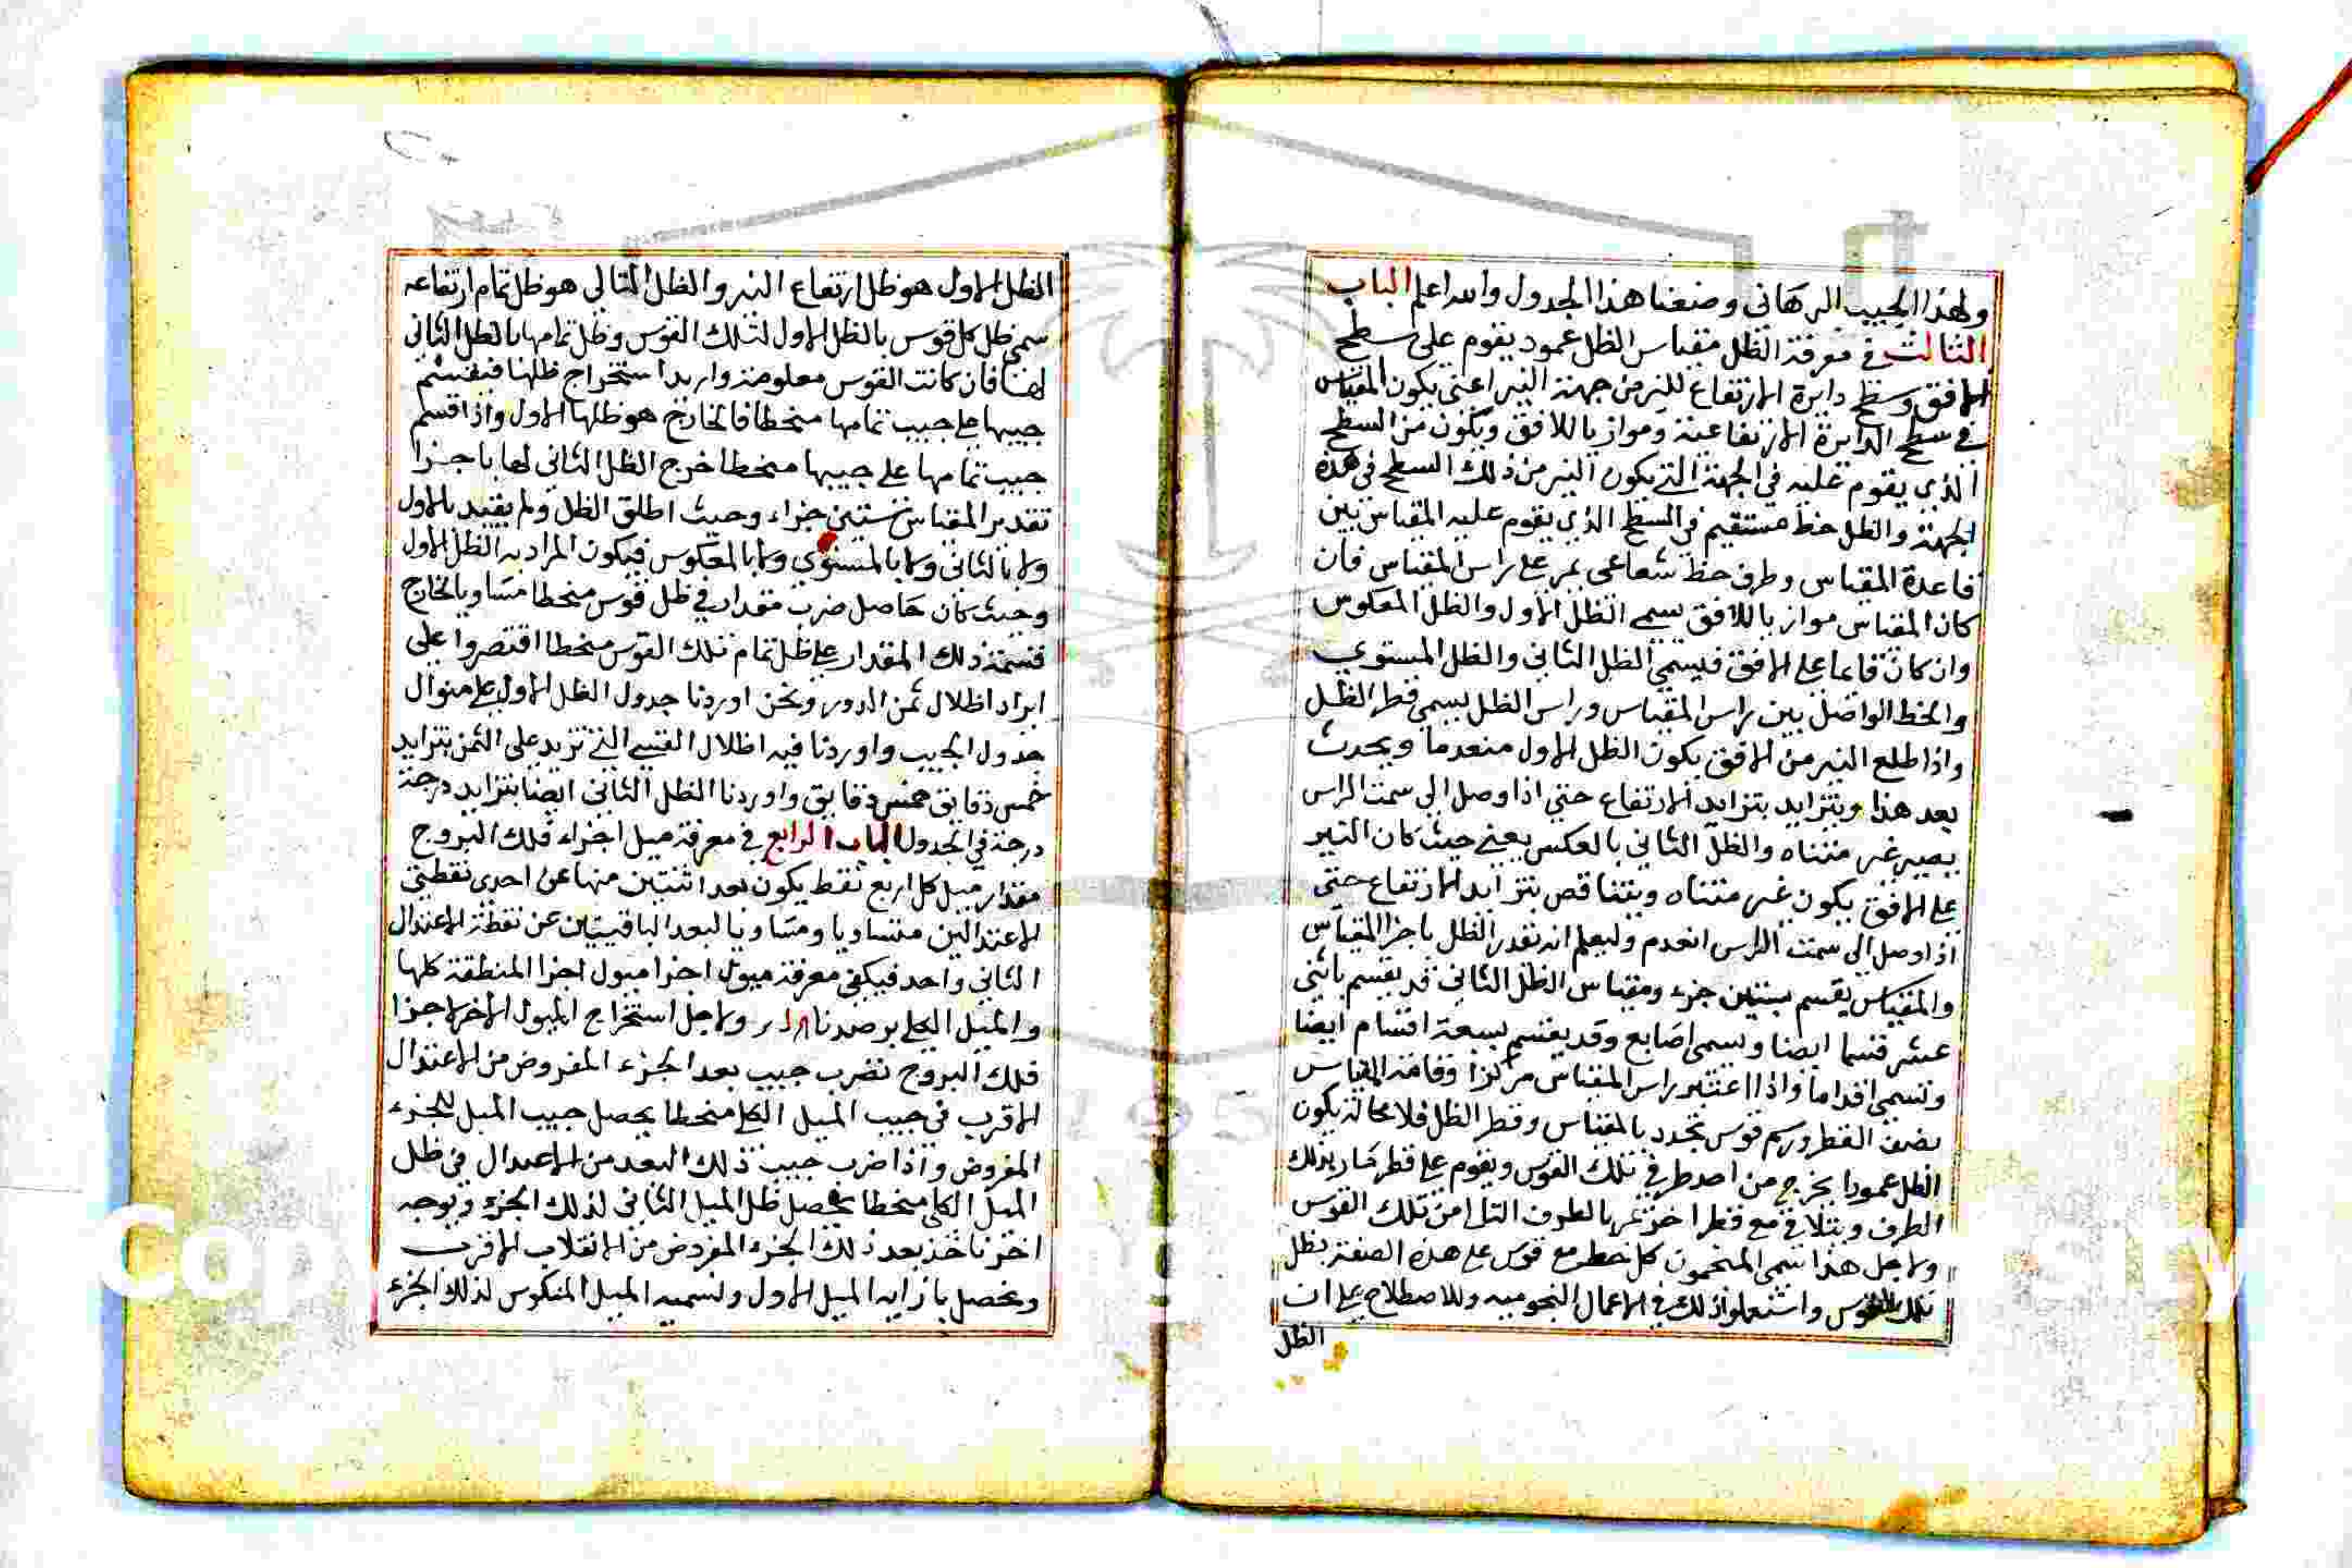 ولهذا الجيب البرهاني وضعنا هذا الجدول والله اعلم الباب
الثالث في معرفة الظل مقياس الظل عمود يقوم على سطح
الافق وسطح دايرة الارتفاع للنير من جهة النير اعني يكون المقياس
في سطح الدايرة الارتفاعية وموازيا للافق ويكون من السطح
الذي يقوم عليه في الجهة التي يكون النير من ذلك السطح في هذه
الجهة والظل خط مستقيم في السطح الذي يقوم عليه المقياس بين
قاعدة المقياس وطرف خط شعاعي يمر على راس المقياس فان
كان المقياس موازيا للافق يسمى الظل الاول والظل المعكوس
وان كان قايما على الافق فيسمى الظل الثاني والظل المستوي
والخط الواصل بين راس المقياس وراس الظل يسمى قطر الظل
واذا طلع النير من الافق يكون الظل الاول منعدما ويحدث
بعد هذا ويتزايد بتزايد الارتفاع حتى اذا وصل الى سمت الراس
يصير غير متناه والظل الثاني بالعكس يعني حيث كان النير
على الافق يكون غير متناه ويتناقص بتزايد الارتفاع حتى
اذا وصل الى سمت الراس انعدم وليعلم انه نقدر الظل باجزا المقياس
والمقياس يقسم بستين جزء ومقياس الظل الثاني قد يقسم باثني
عشر قسما ايضا ويسمى اصابع وقد يقسم بسبعة اقسام ايضا
وتسمى اقداما واذا اعتبر راس المقياس مركزا وقامة المقياس
نصف القطر ورسم قوس تحدد بالمقياس وقطر الظل فلا محالة يكون
الظل عمودا يخرج من احد طرفي تلك القوس ويقوم على قطر مار بذلك
الطرف ويتلاقى مع قطر اخر يمر بالطرف التالي من تلك القوس
ولاجل هذا سمى المنجمون كل خط مع قوس على هذه الصفة بظل
تلك القوس واستعملوا ذلك في الاعمال النجوميه وللاصطلاح على ان
الظل
الظل الاول هو ظل ارتفاع النير والظل الثاني هو ظل تمام ارتفاعه
سمي ظل كل قوس بالظل الاول لتلك القوس وظل تمامها بالظل الثاني
لها فان كانت القوس معلومة واريد استخراج ظلها فيقسم
جيبها على جيب تمامها منحطا فالخارج هو ظلها الاول واذا قسم
جيب تمامها على جيبها منحطا خرج الظل الثاني لها باجزا
تقدير المقياس بستين جزاء وحيث اطلق الظل ولم يقيد بالاول
ولا بالثاني ولا بالمستوي ولا بالمعكوس فيكون المراد به الظل الاول
وحيث كان حاصل ضرب مقدار في ظل قوس منحطا مساويا لخارج
قسمة ذلك المقدار على ظل تمام تلك القوس منحطا اقتصروا على
ايراد اظلال ثمن الدور ونحن اوردنا جدول الظل الاول على منوال
جدول الجيب واوردنا فيه اظلال القسي التي تزيد على الثمن بتزايد
خمس دقايق خمس دقايق واوردنا الظل الثاني ايضا بتزايد درجة
درجة في الجدول الباب الرابع في معرفة ميل اجزاء فلك البروج
مقدار ميل كل اربع نقط يكون بعد اثنتين منها عن احدى نقطتي
الاعتدالين متساويا ومساويا لبعد الباقيتين عن نقطة الاعتدال
الثاني واحد فيكفي معرفة ميول اجزا ميول اجزا المنطقة كلها
والميل الكلي برصدنا ولاجل استخراج الميول الاخر لاجزا
فلك البروج نضرب جيب بعد الجزء المفروض من الاعتدال
الاقرب في جيب الميل الكلي منحطا يحصل جيب الميل للجزء
المفروض واذا ضرب جيب ذلك البعد من الاعتدال في ظل
الميل الكلي منحطا يحصل ظل الميل الثاني لذلك الجزء وبوجه
اخر ناخذ بعد ذلك الجزء المفروض من الانقلاب الاقرب
ونحصل بازايه الميل الاول ونسميه الميل المنكوس لذلك الجزء